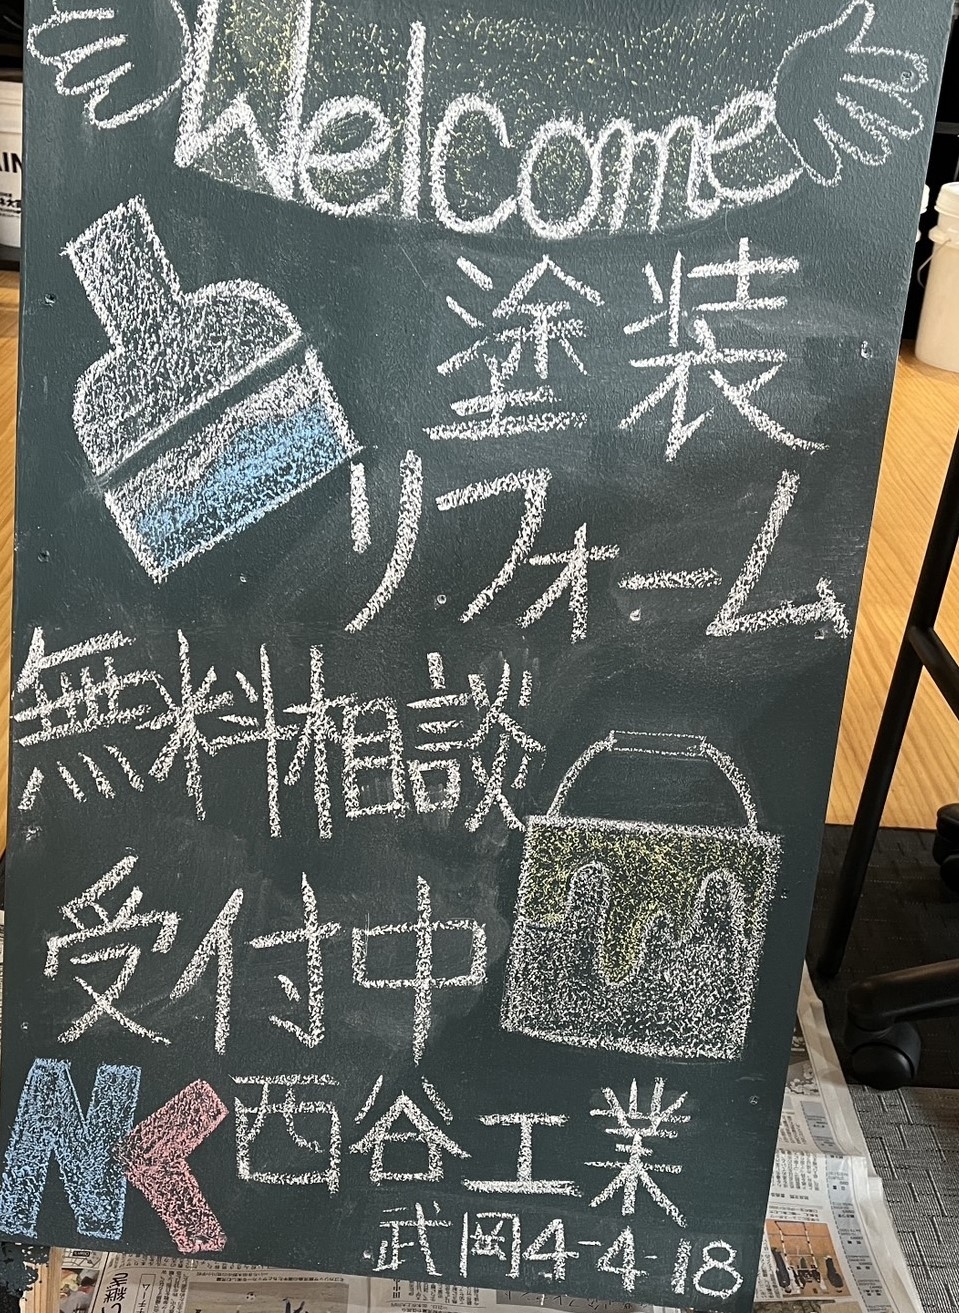 Welcome
塗装
リフォーム
無料相談
受付中
NK 西谷工業
武岡4-4-18